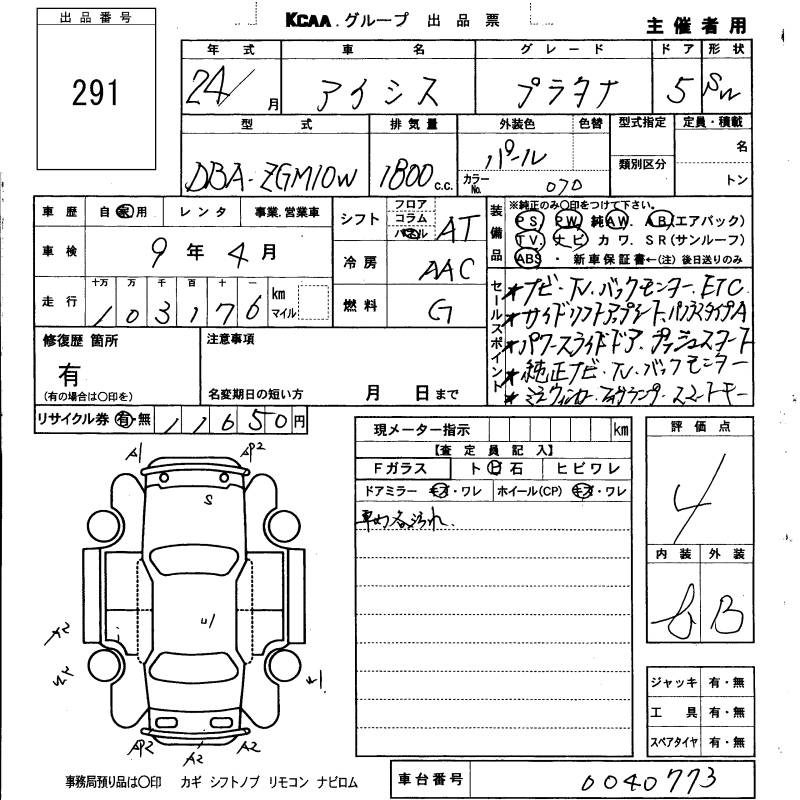 出品番号
291
KCAA.グループ 出品票
主催者用
年式 車名 グレード ドア 形状
24/月 アイシス プラタナ 5 SW
型式 排気量 外装色 色替 型式指定 定員・積載
DBA-ZGM10W 1800c.c. パール 名
カラーNo. 070 類別区分 トン
車歴 自家用 レンタ 事業.営業車
車検 9年4月
走行 十万 万 千 百 十 一
103176 km マイル
シフト フロア コラム パネル AT
冷房 AAC
燃料 G
装備品
※純正のみ〇印をつけて下さい。
PS PW 純AW. AB(エアバック)
TV. ナビ カワ. SR(サンルーフ)
ABS ・ 新車保証書←(注)後日送りのみ
セールスポイント
★ナビ・TV.バックモニター.ETC
★サイドリフトアップシート、パノラマタイプA
★パワースライドドア.プッシュスタート
★純正ナビ・TV.バックモニター
★ミラーウィンカー スマートキー
修復歴 箇所
有
(有の場合は〇印を)
注意事項
名変期日の短い方 月 日まで
リサイクル券 有・無 11650円
現メーター指示 km
【査定員記入】
Fガラス ト ビ 石 ヒビワレ
ドアミラー キズ・ワレ ホイール(CP) キズ・ワレ
汚れ.
評価点
4
内装 外装
B
A1 AP2
S
U1
A2
AP2 A2 A2
ジャッキ 有・無
工具 有・無
スペアタイヤ 有・無
事務局預り品は〇印 カギ シフトノブ リモコン ナビロム
車台番号 0040773